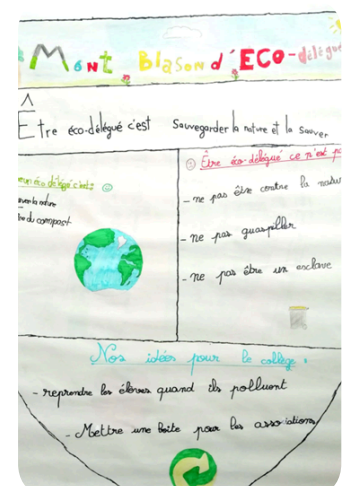 Mont Blason d'ECO-délégué
Être éco-délégué c'est Sauvegarder la nature et la sauver
éco délégué c'est :
la nature
du compost
Être éco-délégué ce n'est p
- ne pas être contre la natu
- ne pas guaspiller
- ne pas être un esclave
Nos idées pour le collège :
- reprendre les élèves quand ils polluent
- Mettre une boîte pour les associations